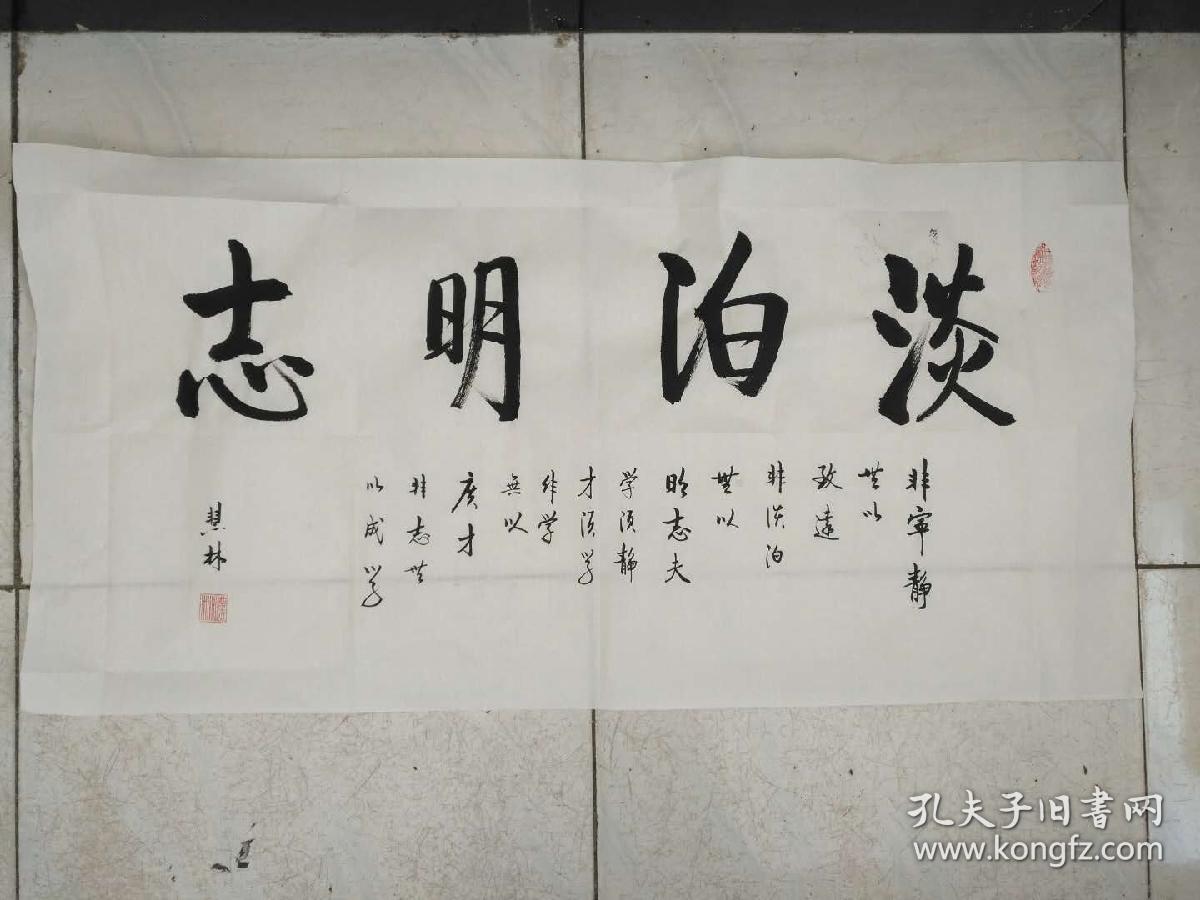 淡泊明志
非寜静
無以
致遠
非淡泊
無以
明志夫
学須静
才須学
非学
無以
廣才
非志無
以成学
慧林
孔夫子旧書网
www.kongfz.com